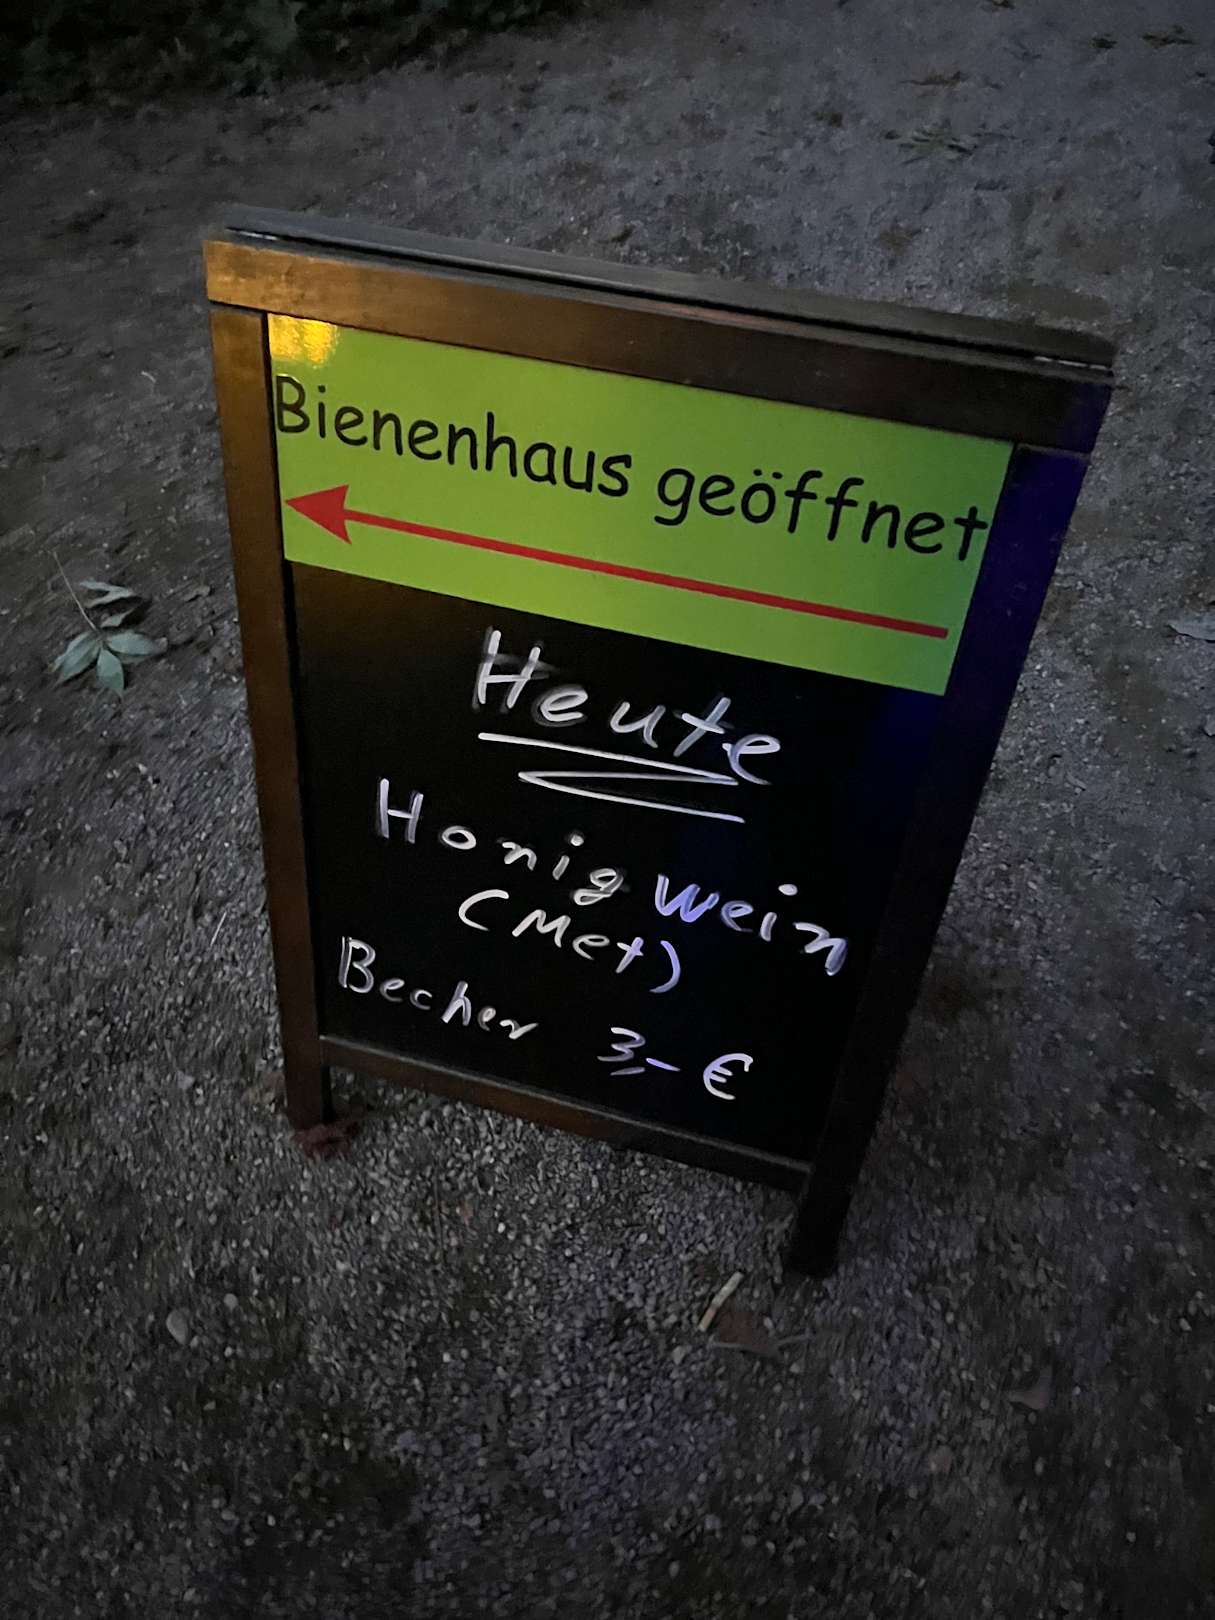 Bienenhaus geöffnet
Heute
Honigwein
(Met)
Becher 3,- €